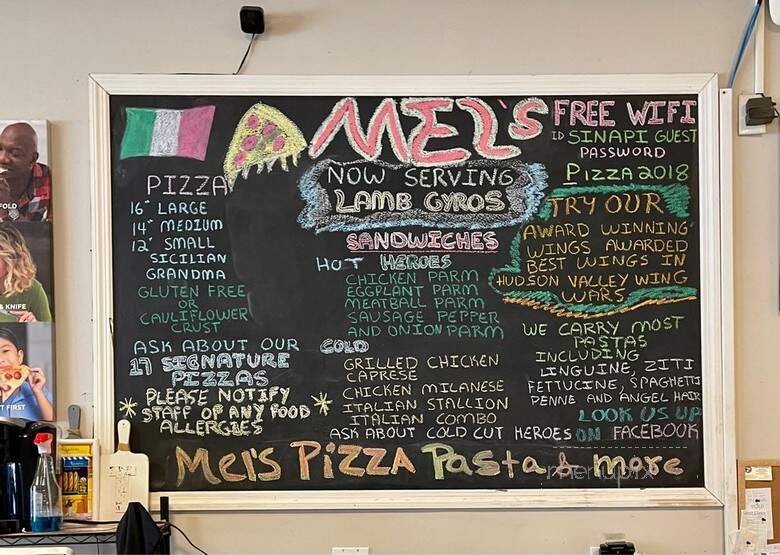 MEL'S
NOW SERVING
LAMB GYROS
PIZZA
16" LARGE
14" MEDIUM
12" SMALL
SICILIAN
GRANDMA
GLUTEN FREE
OR
CAULIFLOWER
CRUST
ASK ABOUT OUR
17 SIGNATURE
PIZZAS
PLEASE NOTIFY
STAFF OF ANY FOOD
ALLERGIES
SANDWICHES
HOT HEROES
CHICKEN PARM
EGGPLANT PARM
MEATBALL PARM
SAUSAGE PEPPER
AND ONION PARM
COLD
GRILLED CHICKEN
CAPRESE
CHICKEN MILANESE
ITALIAN STALLION
ITALIAN COMBO
ASK ABOUT COLD CUT HEROES
FREE WIFI
ID SINAPI GUEST
PASSWORD
PIZZA2018
TRY OUR
AWARD WINNING
WINGS AWARDED
BEST WINGS IN
HUDSON VALLEY WING
WARS
WE CARRY MOST
PASTAS
INCLUDING
LINGUINE, ZITI
FETTUCINE, SPAGHETTI
PENNE AND ANGEL HAIR
LOOK US UP
ON FACEBOOK
Mel's PIZZA Pasta & more
menupix
FOLD
& KNIFE
T FIRST